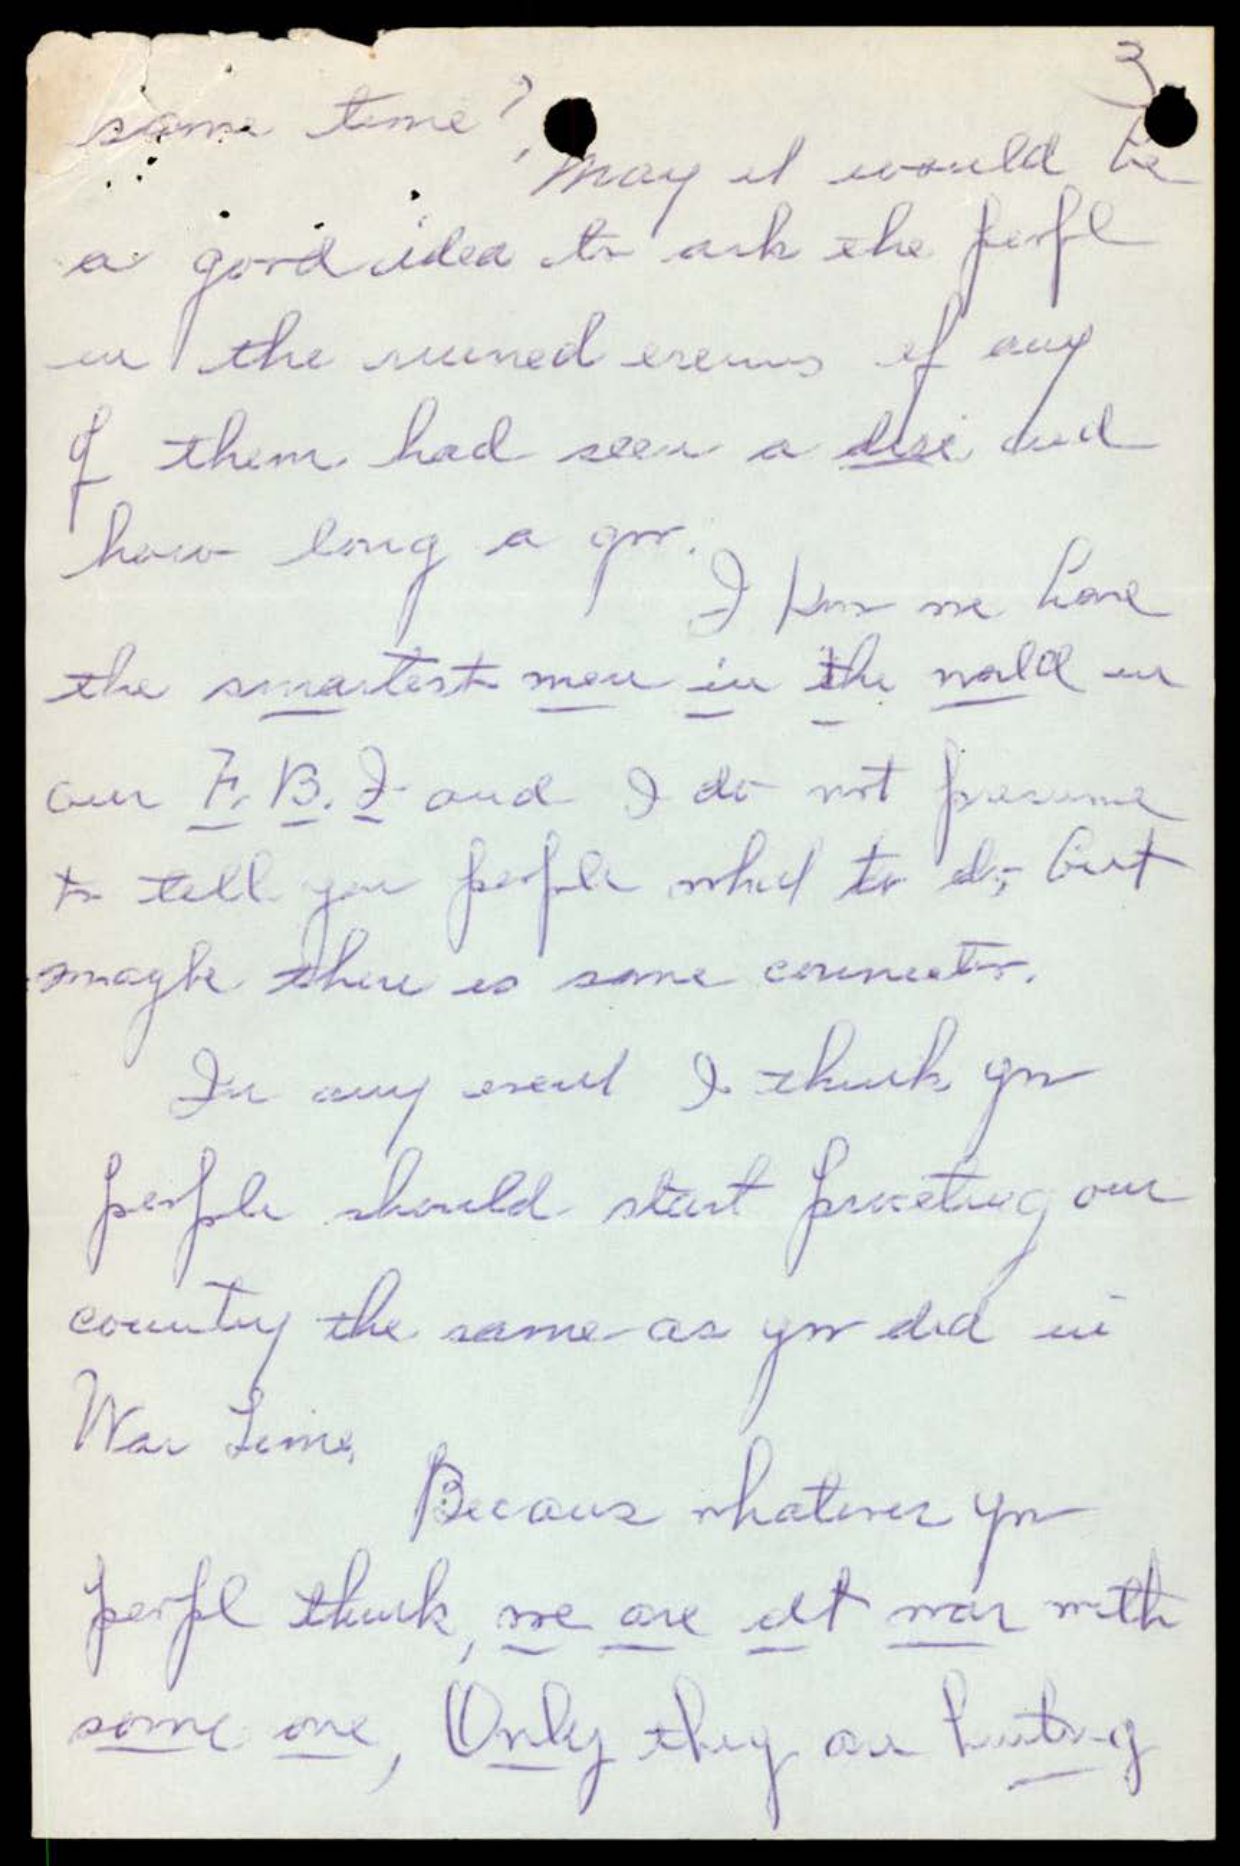 3
same time?
May it would be
a good idea to ask the peopl
in the ruined areaus if any
of them had seen a disc and
how long a go.
I know we have
the smartest men in the world in
our F. B. I. and I do not presume
to tell you people what to do, but
maybe there is some connecton.
In any event I think you
people should start protecting our
country the same as you did in
War Time,
Becaus whatever you
peopl think, we are at war with
some one, Only they are